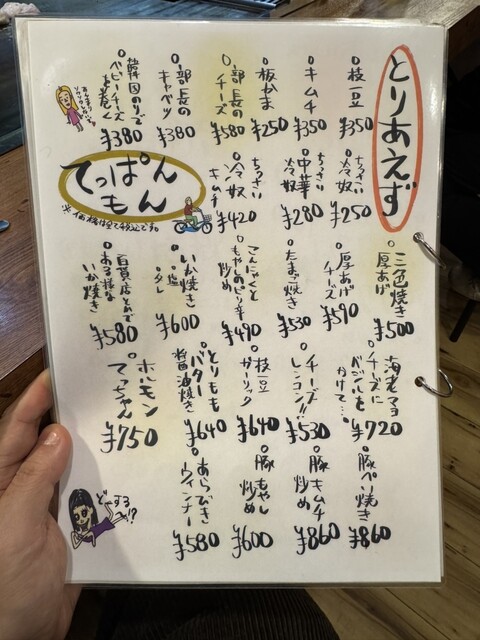 とりあえず
枝豆
¥350
キムチ
¥350
板かま
¥250
部長の
チーズ
¥580
部長の
キャベツ
¥380
韓国のりで
ベビーチーズ
を巻く
¥380
ちっさい
冷奴
¥250
ちっさい
中華
冷奴
¥280
ちっさい
冷奴
キムチ
¥420
てっぱん
もん
※価格は全て税込です。
三色焼き
厚あげ
¥500
厚あげ
チーズ
¥590
たまご焼き
¥530
こんにゃくと
もやしのピリ辛
炒め
¥490
いか焼き
・塩
・タレ
¥600
百貨店とかで
ある様な
いか焼き
¥580
海老マヨ
チーズに
バジルを
かけて…
¥720
チーズ
レンコン!!
¥530
枝豆
ガーリック
¥640
とりもも
バター
醤油焼き
¥640
ホルモン
てっちゃん
¥750
豚ペリ焼き
¥860
豚キムチ
炒め
¥860
豚もやし
炒め
¥600
あらびき
ウインナー
¥580
どーする
〜!?